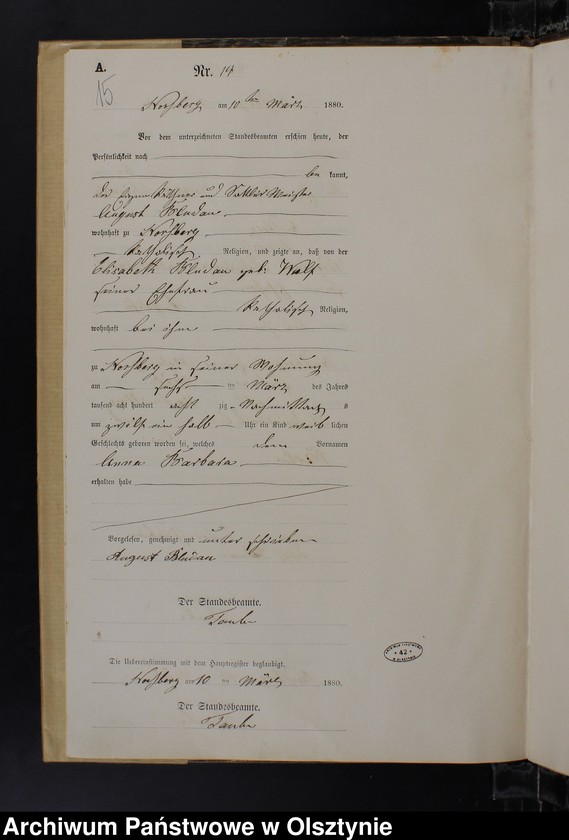 A.
Nr. 14
15
am 10ten März 1880.
Vor dem unterzeichneten Standesbeamten erschien heute, der
Persönlichkeit nach
be kannt,
der und
August Bludau
wohnhaft zu
katholisch Religion, und zeigte an, daß von der
Elisabeth Bludau geb: Wolf
seiner Ehefrau
katholisch Religion,
wohnhaft bei ihm
zu in seiner Wohnung
am sechs ten März des Jahres
tausend acht hundert acht zig Nachmittags
um zwölf ein halb Uhr ein Kind weib lichen
Geschlechts geboren worden sei, welches den Vornamen
Anna Barbara
erhalten habe
Vorgelesen, genehmigt und unterschrieben
August Bludau
Der Standesbeamte.
Die Uebereinstimmung mit dem Hauptregister beglaubigt.
am 10 ten März 1880.
Der Standesbeamte.
42
Archiwum Państwowe w Olsztynie